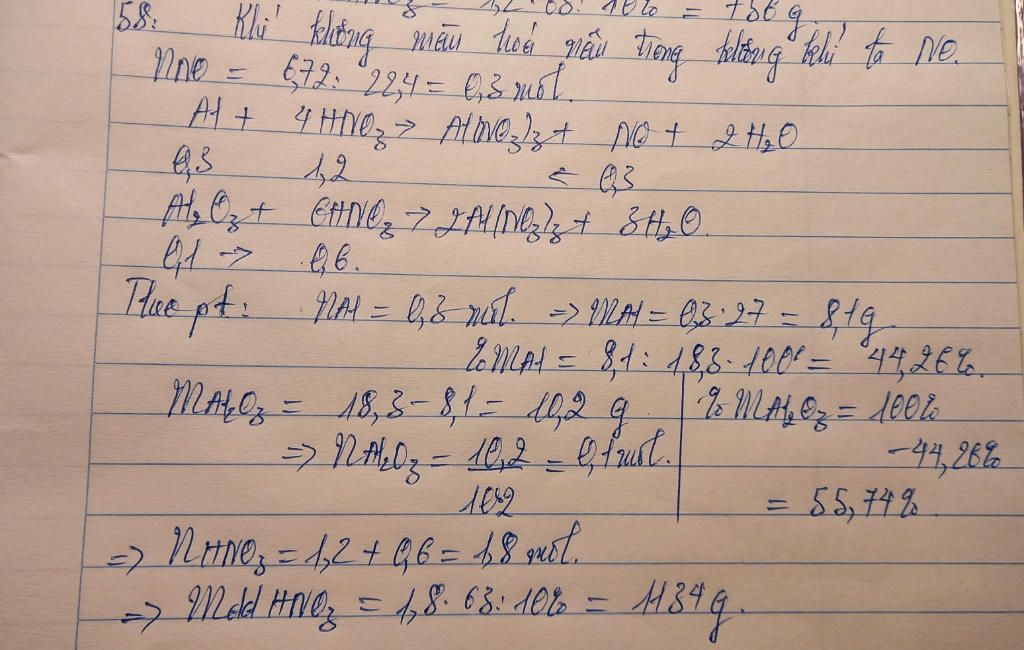 = 1,2 . 63 : 10% = 756 g.
58: Khí không màu hoá nâu trong không khí là NO.
nNO = 6,72 : 22,4 = 0,3 mol.
Al + 4HNO₃ → Al(NO₃)₃ + NO + 2H₂O
0,3 1,2 ← 0,3
Al₂O₃ + 6HNO₃ → 2Al(NO₃)₃ + 3H₂O.
0,1 → 0,6.
Theo pt: nAl = 0,3 mol. => mAl = 0,3 . 27 = 8,1g.
%mAl = 8,1 : 18,3 . 100% = 44,26%.
mAl₂O₃ = 18,3 - 8,1 = 10,2 g %mAl₂O₃ = 100%
=> nAl₂O₃ = 10,2 = 0,1 mol. -44,26%
102 = 55,74%
=> nHNO₃ = 1,2 + 0,6 = 1,8 mol.
=> mdd HNO₃ = 1,8 . 63 : 10% = 1134 g.